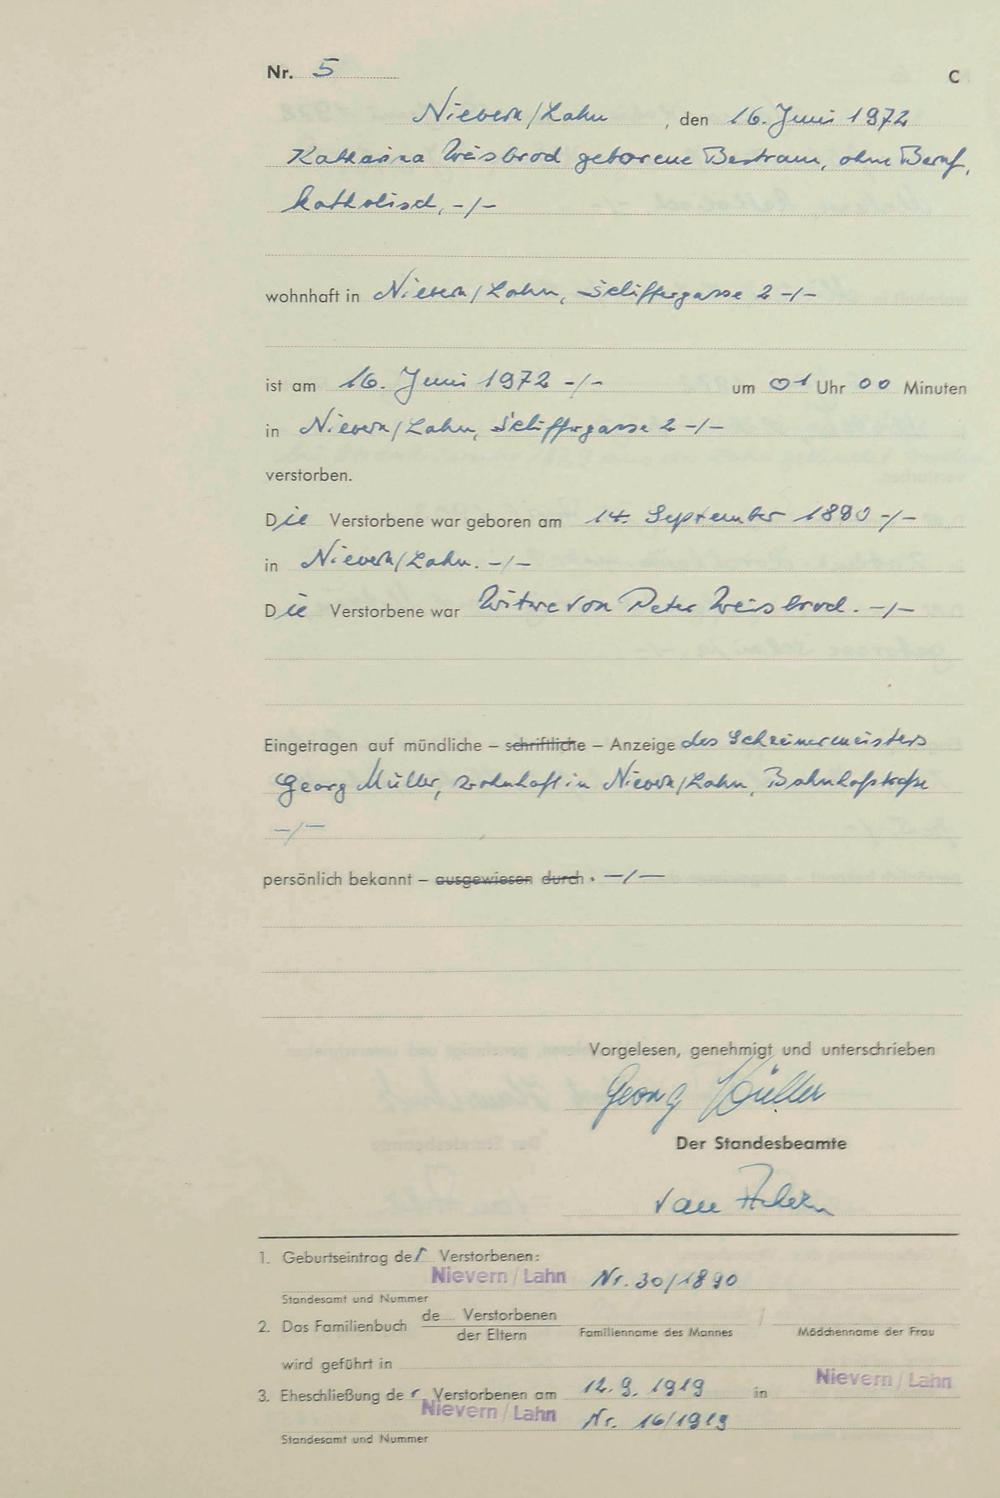 Nr. 5 C
Nievern/Lahn, den 16. Juni 1972
Katharina Weisbrod geborene Bertram, ohne Beruf,
katholisch, -/-
wohnhaft in Nievern/Lahn, Schiffergasse 2 -/-
ist am 16. Juni 1972 -/- um 01 Uhr 00 Minuten
in Nievern/Lahn, Schiffergasse 2 -/-
verstorben.
Die Verstorbene war geboren am 14. September 1890 -/-
in Nievern/Lahn. -/-
Die Verstorbene war Witwe von Peter Weisbrod. -/-
Eingetragen auf mündliche – schriftliche – Anzeige des Schreinermeisters
Georg Müller, wohnhaft in Nievern/Lahn, Bahnhofstraße
-/-
persönlich bekannt – ausgewiesen durch. -/-
Vorgelesen, genehmigt und unterschrieben
Georg Müller
Der Standesbeamte
van
1. Geburtseintrag der Verstorbenen:
Nievern / Lahn Nr. 30/1890
Standesamt und Nummer
2. Das Familienbuch de Verstorbenen /
der Eltern Familienname des Mannes Mädchenname der Frau
wird geführt in
3. Eheschließung der Verstorbenen am 12.9.1919 in Nievern / Lahn
Nievern / Lahn Nr. 16/1919
Standesamt und Nummer